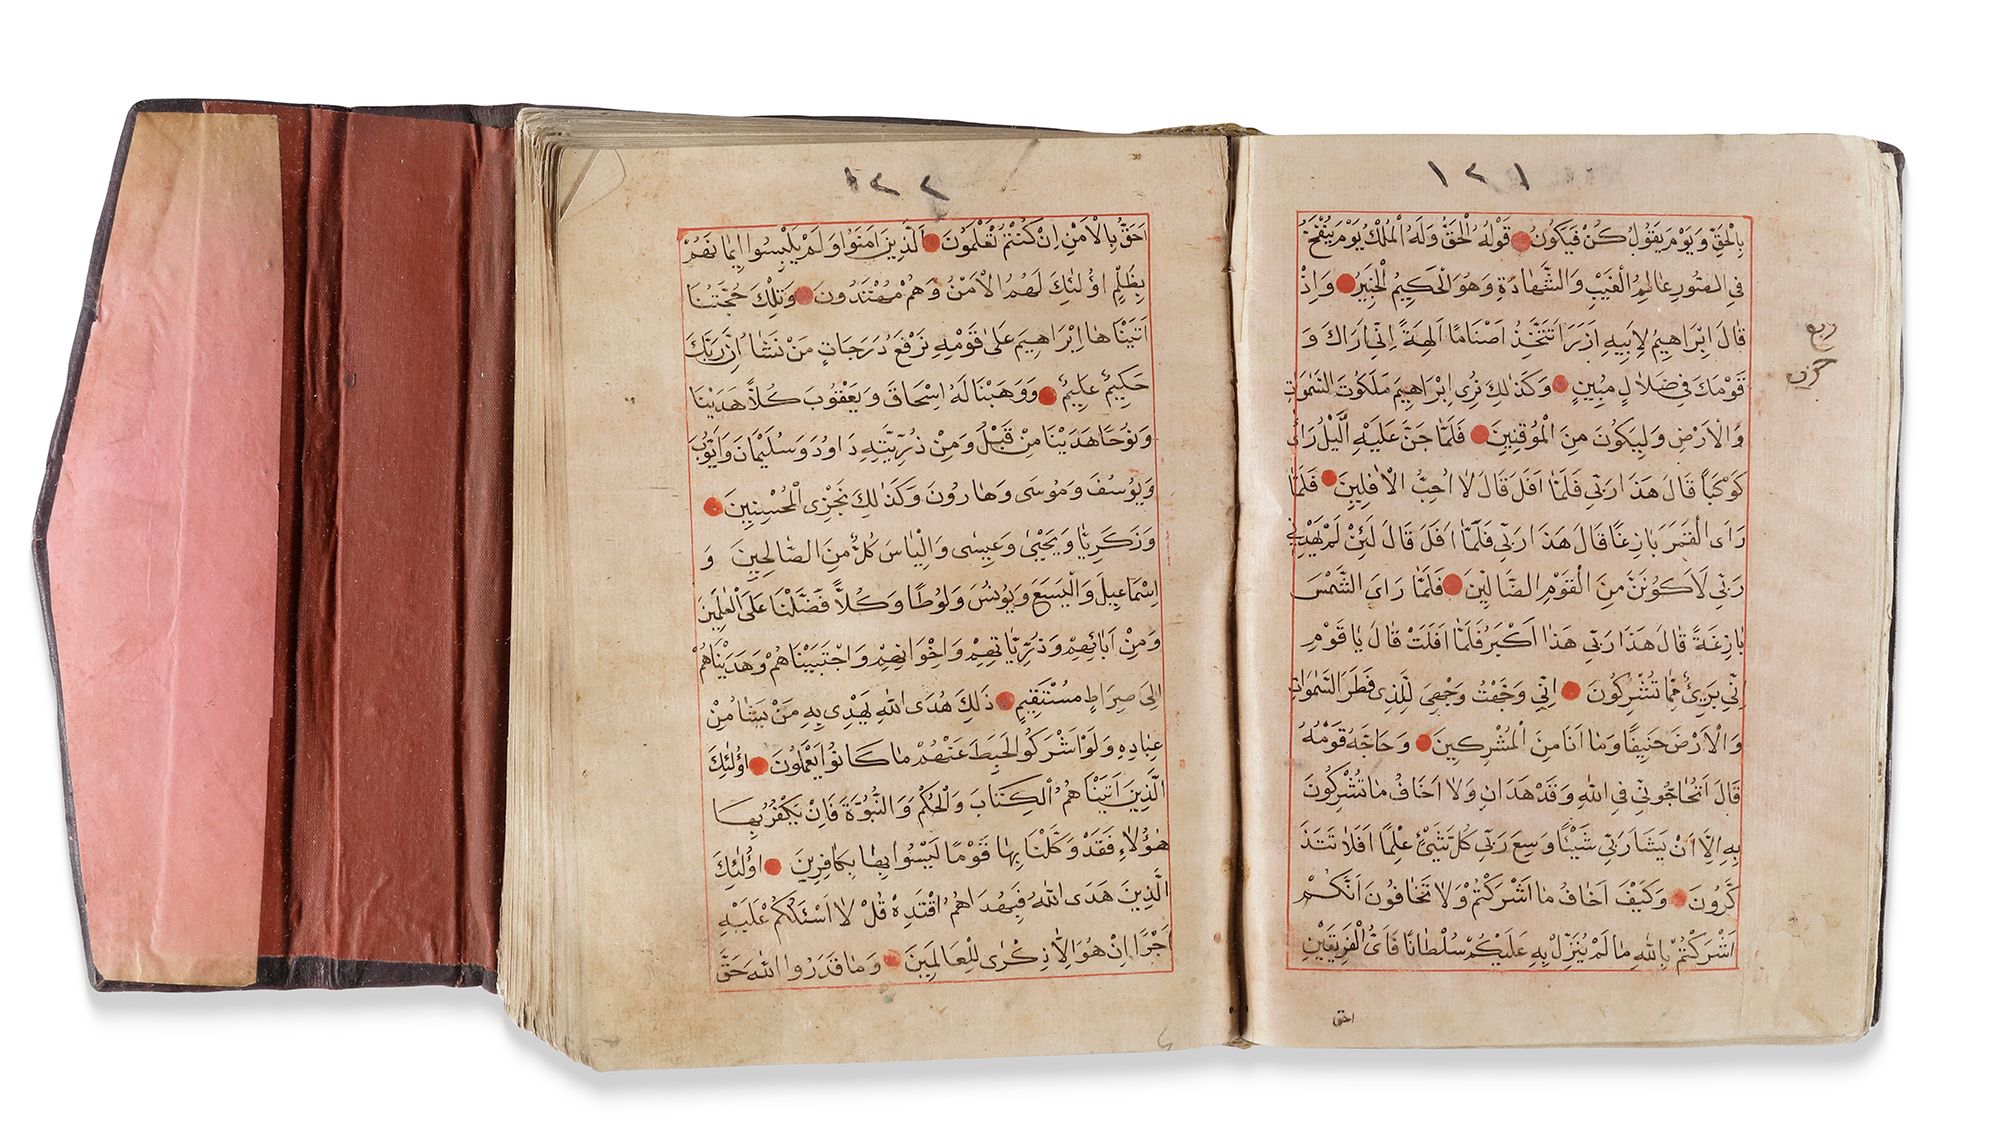 ١٢١
بِالْحَقِّ وَيَوْمَ يَقُولُ كُنْ فَيَكُونُ قَوْلُهُ الْحَقُّ وَلَهُ الْمُلْكُ يَوْمَ يُنْفَخُ
فِي الصُّورِ عَالِمُ الْغَيْبِ وَالشَّهَادَةِ وَهُوَ الْحَكِيمُ الْخَبِيرُ وَإِذْ
قَالَ إِبْرَاهِيمُ لِأَبِيهِ آزَرَ أَتَتَّخِذُ أَصْنَامًا آلِهَةً إِنِّي أَرَاكَ وَ
قَوْمَكَ فِي ضَلَالٍ مُبِينٍ وَكَذَلِكَ نُرِي إِبْرَاهِيمَ مَلَكُوتَ السَّمٰوَاتِ
وَالْأَرْضِ وَلِيَكُونَ مِنَ الْمُوقِنِينَ فَلَمَّا جَنَّ عَلَيْهِ الَّيْلُ رَأَى
كَوْكَبًا قَالَ هَذَا رَبِّي فَلَمَّا أَفَلَ قَالَ لَا أُحِبُّ الْآفِلِينَ فَلَمَّا
رَأَى الْقَمَرَ بَازِغًا قَالَ هَذَا رَبِّي فَلَمَّا أَفَلَ قَالَ لَئِنْ لَمْ يَهْدِنِي
رَبِّي لَأَكُونَنَّ مِنَ الْقَوْمِ الضَّالِّينَ فَلَمَّا رَأَى الشَّمْسَ
بَازِغَةً قَالَ هَذَا رَبِّي هَذَا أَكْبَرُ فَلَمَّا أَفَلَتْ قَالَ يَا قَوْمِ
إِنِّي بَرِيءٌ مِمَّا تُشْرِكُونَ إِنِّي وَجَّهْتُ وَجْهِيَ لِلَّذِي فَطَرَ السَّمٰوَاتِ
وَالْأَرْضَ حَنِيفًا وَمَا أَنَا مِنَ الْمُشْرِكِينَ وَحَاجَّهُ قَوْمُهُ
قَالَ أَتُحَاجُّونِّي فِي اللهِ وَقَدْ هَدَانِ وَلَا أَخَافُ مَا تُشْرِكُونَ
بِهِ إِلَّا أَنْ يَشَا رَبِّي شَيْئًا وَسِعَ رَبِّي كُلَّ شَيْءٍ عِلْمًا أَفَلَا تَتَذَ
كَّرُونَ وَكَيْفَ أَخَافُ مَا أَشْرَكْتُمْ وَلَا تَخَافُونَ أَنَّكُمْ
أَشْرَكْتُمْ بِاللهِ مَا لَمْ يُنَزِّلْ بِهِ عَلَيْكُمْ سُلْطَانًا فَأَيُّ الْفَرِيقَيْنِ
احق
ربع
حزب
أَحَقُّ بِالْأَمْنِ إِنْ كُنْتُمْ تَعْلَمُونَ الَّذِينَ آمَنُوا وَلَمْ يَلْبِسُوا إِيمَانَهُمْ
بِظُلْمٍ أُولَئِكَ لَهُمُ الْأَمْنُ وَهُمْ مُهْتَدُونَ وَتِلْكَ حُجَّتُنَا
آتَيْنَاهَا إِبْرَاهِيمَ عَلَى قَوْمِهِ نَرْفَعُ دَرَجَاتٍ مَنْ نَشَا إِنَّ رَبَّكَ
حَكِيمٌ عَلِيمٌ وَوَهَبْنَا لَهُ إِسْحَاقَ وَيَعْقُوبَ كُلًّا هَدَيْنَا
وَنُوحًا هَدَيْنَا مِنْ قَبْلُ وَمِنْ ذُرِّيَّتِهِ دَاوُدَ وَسُلَيْمَانَ وَأَيُّوبَ
وَيُوسُفَ وَمُوسَى وَهَارُونَ وَكَذَلِكَ نَجْزِي الْمُحْسِنِينَ
وَزَكَرِيَّا وَيَحْيَى وَعِيسَى وَإِلْيَاسَ كُلٌّ مِنَ الصَّالِحِينَ وَ
إِسْمَاعِيلَ وَالْيَسَعَ وَيُونُسَ وَلُوطًا وَكُلًّا فَضَّلْنَا عَلَى الْعٰلَمِينَ
وَمِنْ آبَائِهِمْ وَذُرِّيَّاتِهِمْ وَإِخْوَانِهِمْ وَاجْتَبَيْنَاهُمْ وَهَدَيْنَاهُمْ
إِلَى صِرَاطٍ مُسْتَقِيمٍ ذَلِكَ هُدَى اللهِ يَهْدِي بِهِ مَنْ يَشَا مِنْ
عِبَادِهِ وَلَوْ أَشْرَكُوا لَحَبِطَ عَنْهُمْ مَا كَانُوا يَعْمَلُونَ أُولَئِكَ
الَّذِينَ آتَيْنَاهُمُ الْكِتَابَ وَالْحُكْمَ وَالنُّبُوَّةَ فَإِنْ يَكْفُرْ بِهَا
هٰؤُلَاءِ فَقَدْ وَكَّلْنَا بِهَا قَوْمًا لَيْسُوا بِهَا بِكَافِرِينَ أُولَئِكَ
الَّذِينَ هَدَى اللهُ فَبِهُدَاهُمُ اقْتَدِهْ قُلْ لَا أَسْئَلُكُمْ عَلَيْهِ
أَجْرًا إِنْ هُوَ إِلَّا ذِكْرَى لِلْعَالَمِينَ وَمَا قَدَرُوا اللهَ حَقَّ